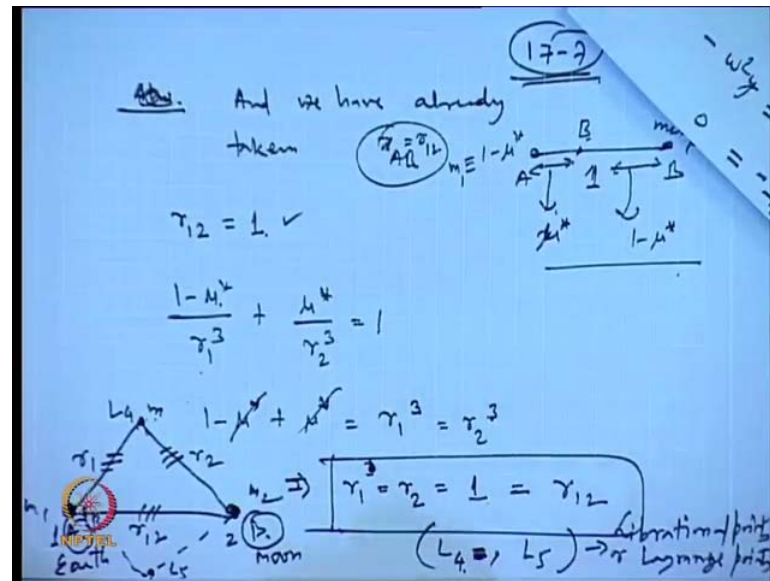 17-7
And we have already
taken
r_AB = r_12
m_1 ≡ 1-μ*
A B 1 B
μ* 1-μ*
r_12 = 1. ✓
\frac{1-μ*}{r_1^3} + \frac{μ*}{r_2^3} = 1
1-μ* + μ* = r_1^3 = r_2^3
⇒ r_1^3 = r_2 = 1 = r_12
(L_4 =, L_5) → Librational points
or Lagrange points
L_4 m
r_1 r_2
m_1 r_12 m_2
1 2
Earth L_5 Moon
NPTEL